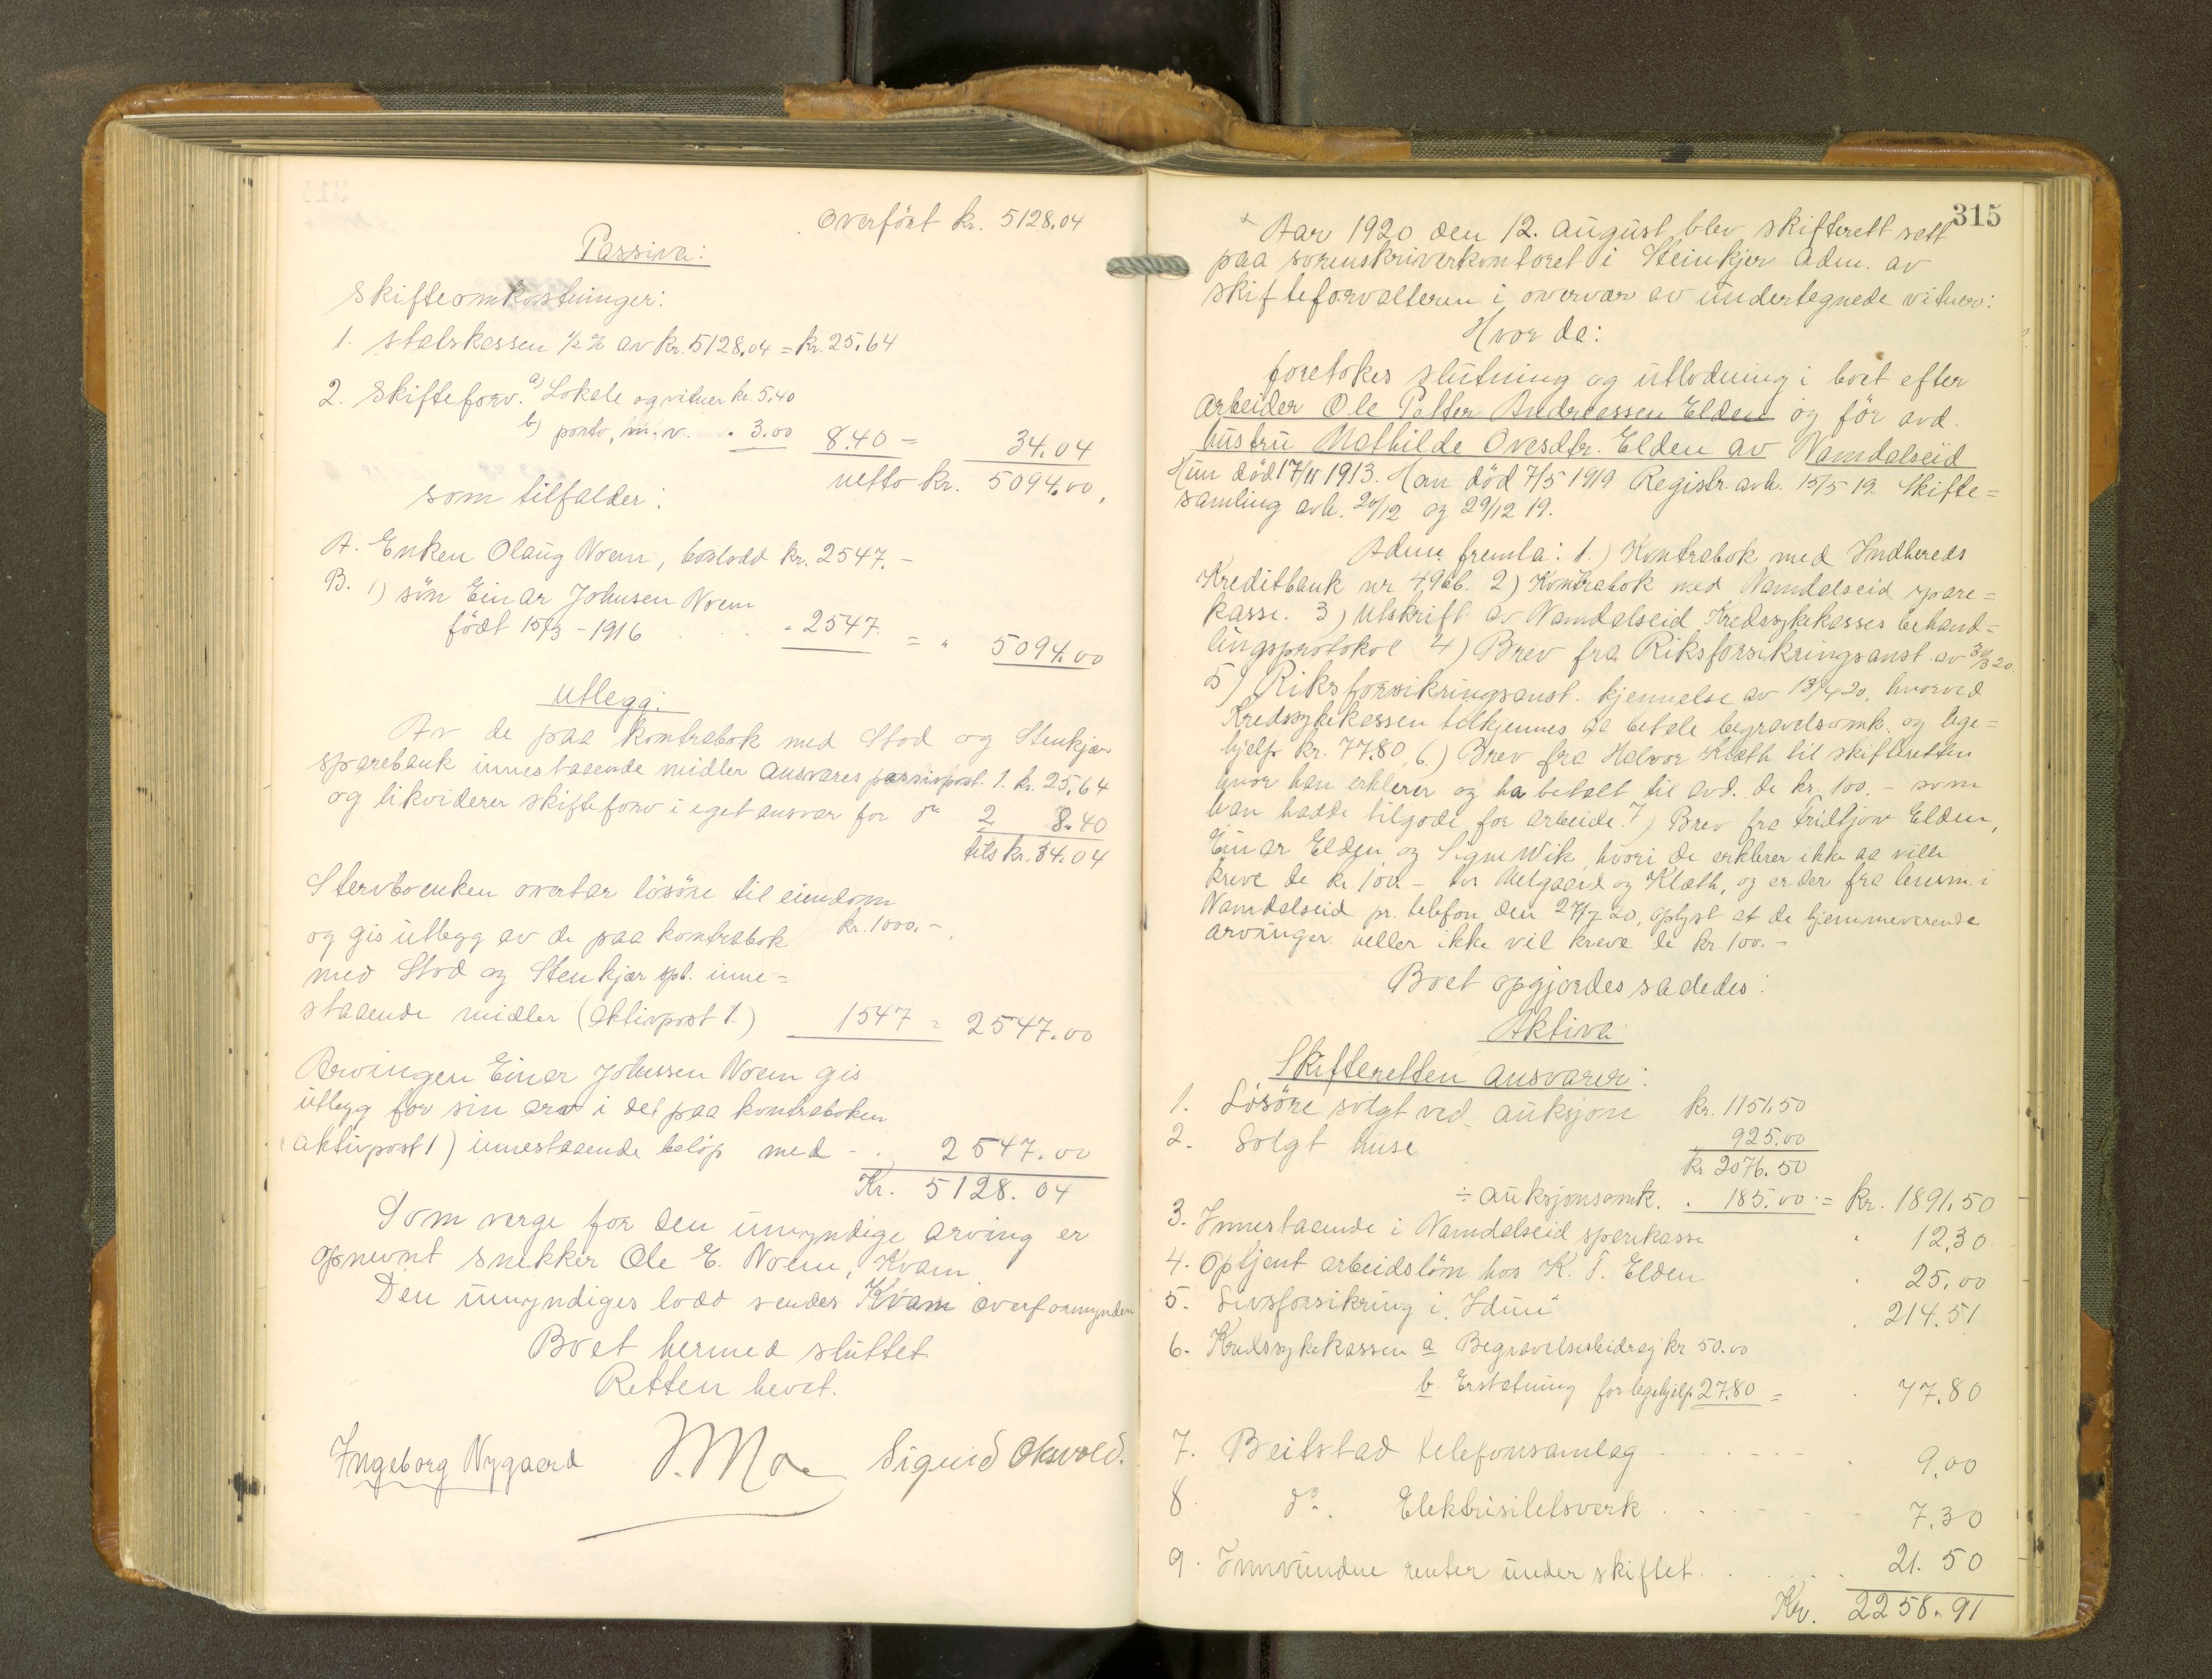 overført kr. 5128.04
Passiva:
Skifteomkostninger:
1. Statskassen ½ % av kr. 5128.04 = kr. 25.64
2. Skifteforv. a) Lokale og vitner kr. 5.40
b) porto, m.v. " 3.00 8.40 = 34.04
netto kr. 5094.00,
som tilfalder:
A. Enken Olaug Noem, boslodd kr. 2547.-
B. 1) søn Einar Johnsen Noem
født 15/3 - 1916 " 2547. = " 5094.00
Utlegg:
Av de paa kontrabok med Stod og Stenkjær
sparebank innestaaende midler ansvares passivpost. 1. kr. 25.64
og likviderer skifteforv i eget ansvar for do 2 8.40
tils kr. 34.04
Stervboenken overtar løsøre til eiendom
kr. 1000.-
og gis utlegg av de paa kontrabok
med Stod og Stenkjær spb. inne=
staaende midler (aktivpost 1.) 1547 = 2547.00
Arvingen Einar Johnsen Noem gis
utlegg for sin arv i det paa kontraboken
(aktivpost 1) innestaaende beløp med - " 2547.00
Kr. 5128.04
Som verge for den umyndige arving er
opnevnt snekker Ole E. Noem, Kvam.
Den umyndiges lodd sendes Kvam overformynderi
Boet hermed sluttet.
Retten hevet.
Ingeborg Nygaard Sigurd Oksvold.
315
Aar 1920 den 12. august blev skifterett sett
paa sorenskriverkontoret i Steinkjer adm. av
skifteforvalteren i overvær av undertegnede vitner:
Hvor da:
foretokes slutning og utlodning i boet efter
arbeider Ole Petter Andreassen Elden og før avd.
hustru Mathilde Ovesdtr. Elden av Namdalseid
Hun død 17/11 1913. Han død 7/5 1919 Registr. avh. 15/5 19. Skifte=
samling avh. 20/12 og 29/12 19.
Adm. fremla: 1.) Kontrabok med Indhereds
Kreditbank nr 4966. 2) Kontrabok med Namdalseid spare=
kasse. 3) Utskrift av Namdalseid Kredssykekasses behand=
lingsprotokol 4) Brev fra Riksforsikringsanst. av 30/3 20.
5) Riksforsikringsanst. kjennelse av 13/4 20, hvorved
Kredssykekassen tilkjennes at betale begravelsomk. og læge=
hjelp kr. 77.80, 6.) Brev fra Halvor Klæth til skifteretten
hvor han erklærer og ha betalt til avd. de kr. 100.- som
han hadde tilgode for arbeide. 7) Brev fra Fridtjov Elden,
Einar Elden og Signe Wik, hvori de erklærer ikke aa ville
kreve de kr 100.- hos Melgaard og Klæth, og er der fra lensm. i
Namdalseid pr. telefon den 27/7 20, oplyst at de hjemmeværende
arvinger heller ikke vil kreve de kr 100.-
Boet opgjordes saaledes:
Aktiva
Skifteretten ansvarer:
1. Løsøre solgt ved auksjon kr. 1151.50
2. Solgt huse 925.00
kr 2076.50
÷ auksjonsomk. " 185.00 = kr. 1891.50
3. Innestaaende i Namdalseid sparekasse " 12.30
4. Optjent arbeidsløn hos K. T. Elden " 25.00
5. Livsforsikring i "Idun" " 214.51
6. Kredssykekassen a Begravelsesbidrag kr 50.00
b. Erstatning for legehjelp 27.80 = " 77.80
7. Beitstad telefonsamlag " 9.00
8. do. Elektrisitetsverk 7.30
9. Innvundne renter under skiftet " 21.50
Kr. 2258.91